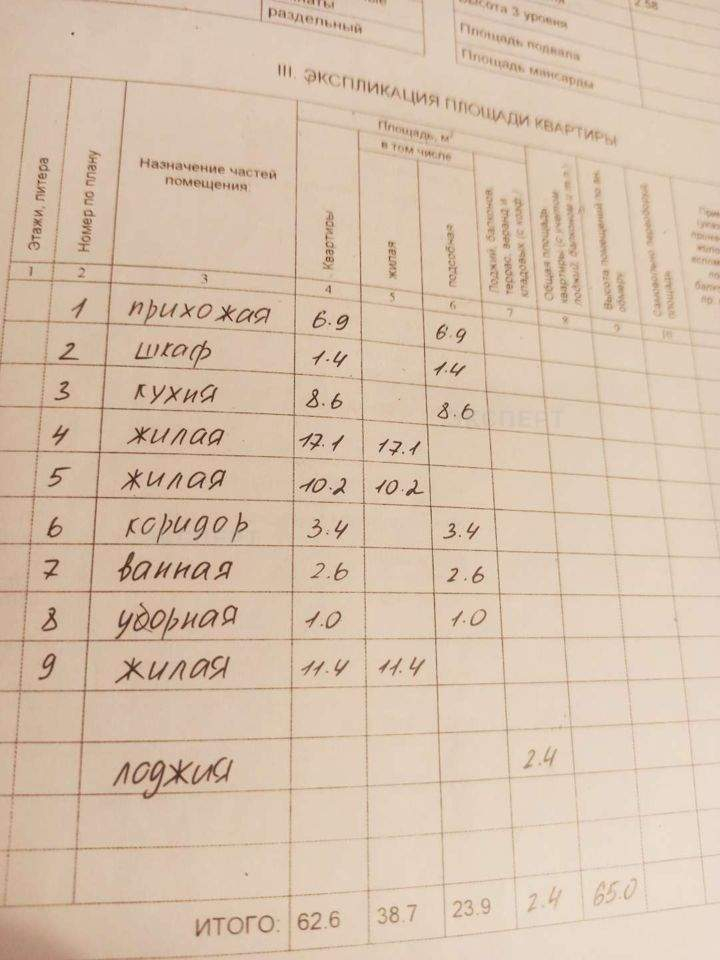 раздельный
Высота 3 уровня
2.58
Площадь подвала
Площадь мансарды
III. ЭКСПЛИКАЦИЯ ПЛОЩАДИ КВАРТИРЫ
Этажи, литера
Номер по плану
Назначение частей помещения:
Площадь, м²
в том числе
Квартиры
жилая
подсобная
Лоджий, балконов, террас, веранд и кладовых (с коэф.)
Общая площадь квартиры (с учетом лоджий, балконов и т.п.)
Высота помещений по вн. обмеру
Самовольно переоборуд. площадь
1 2 3 4 5 6 7 8 9 10
1 прихожая 6.9 6.9
2 шкаф 1.4 1.4
3 кухня 8.6 8.6
4 жилая 17.1 17.1
5 жилая 10.2 10.2
6 коридор 3.4 3.4
7 ванная 2.6 2.6
8 уборная 1.0 1.0
9 жилая 11.4 11.4
лоджия 2.4
ИТОГО: 62.6 38.7 23.9 2.4 65.0